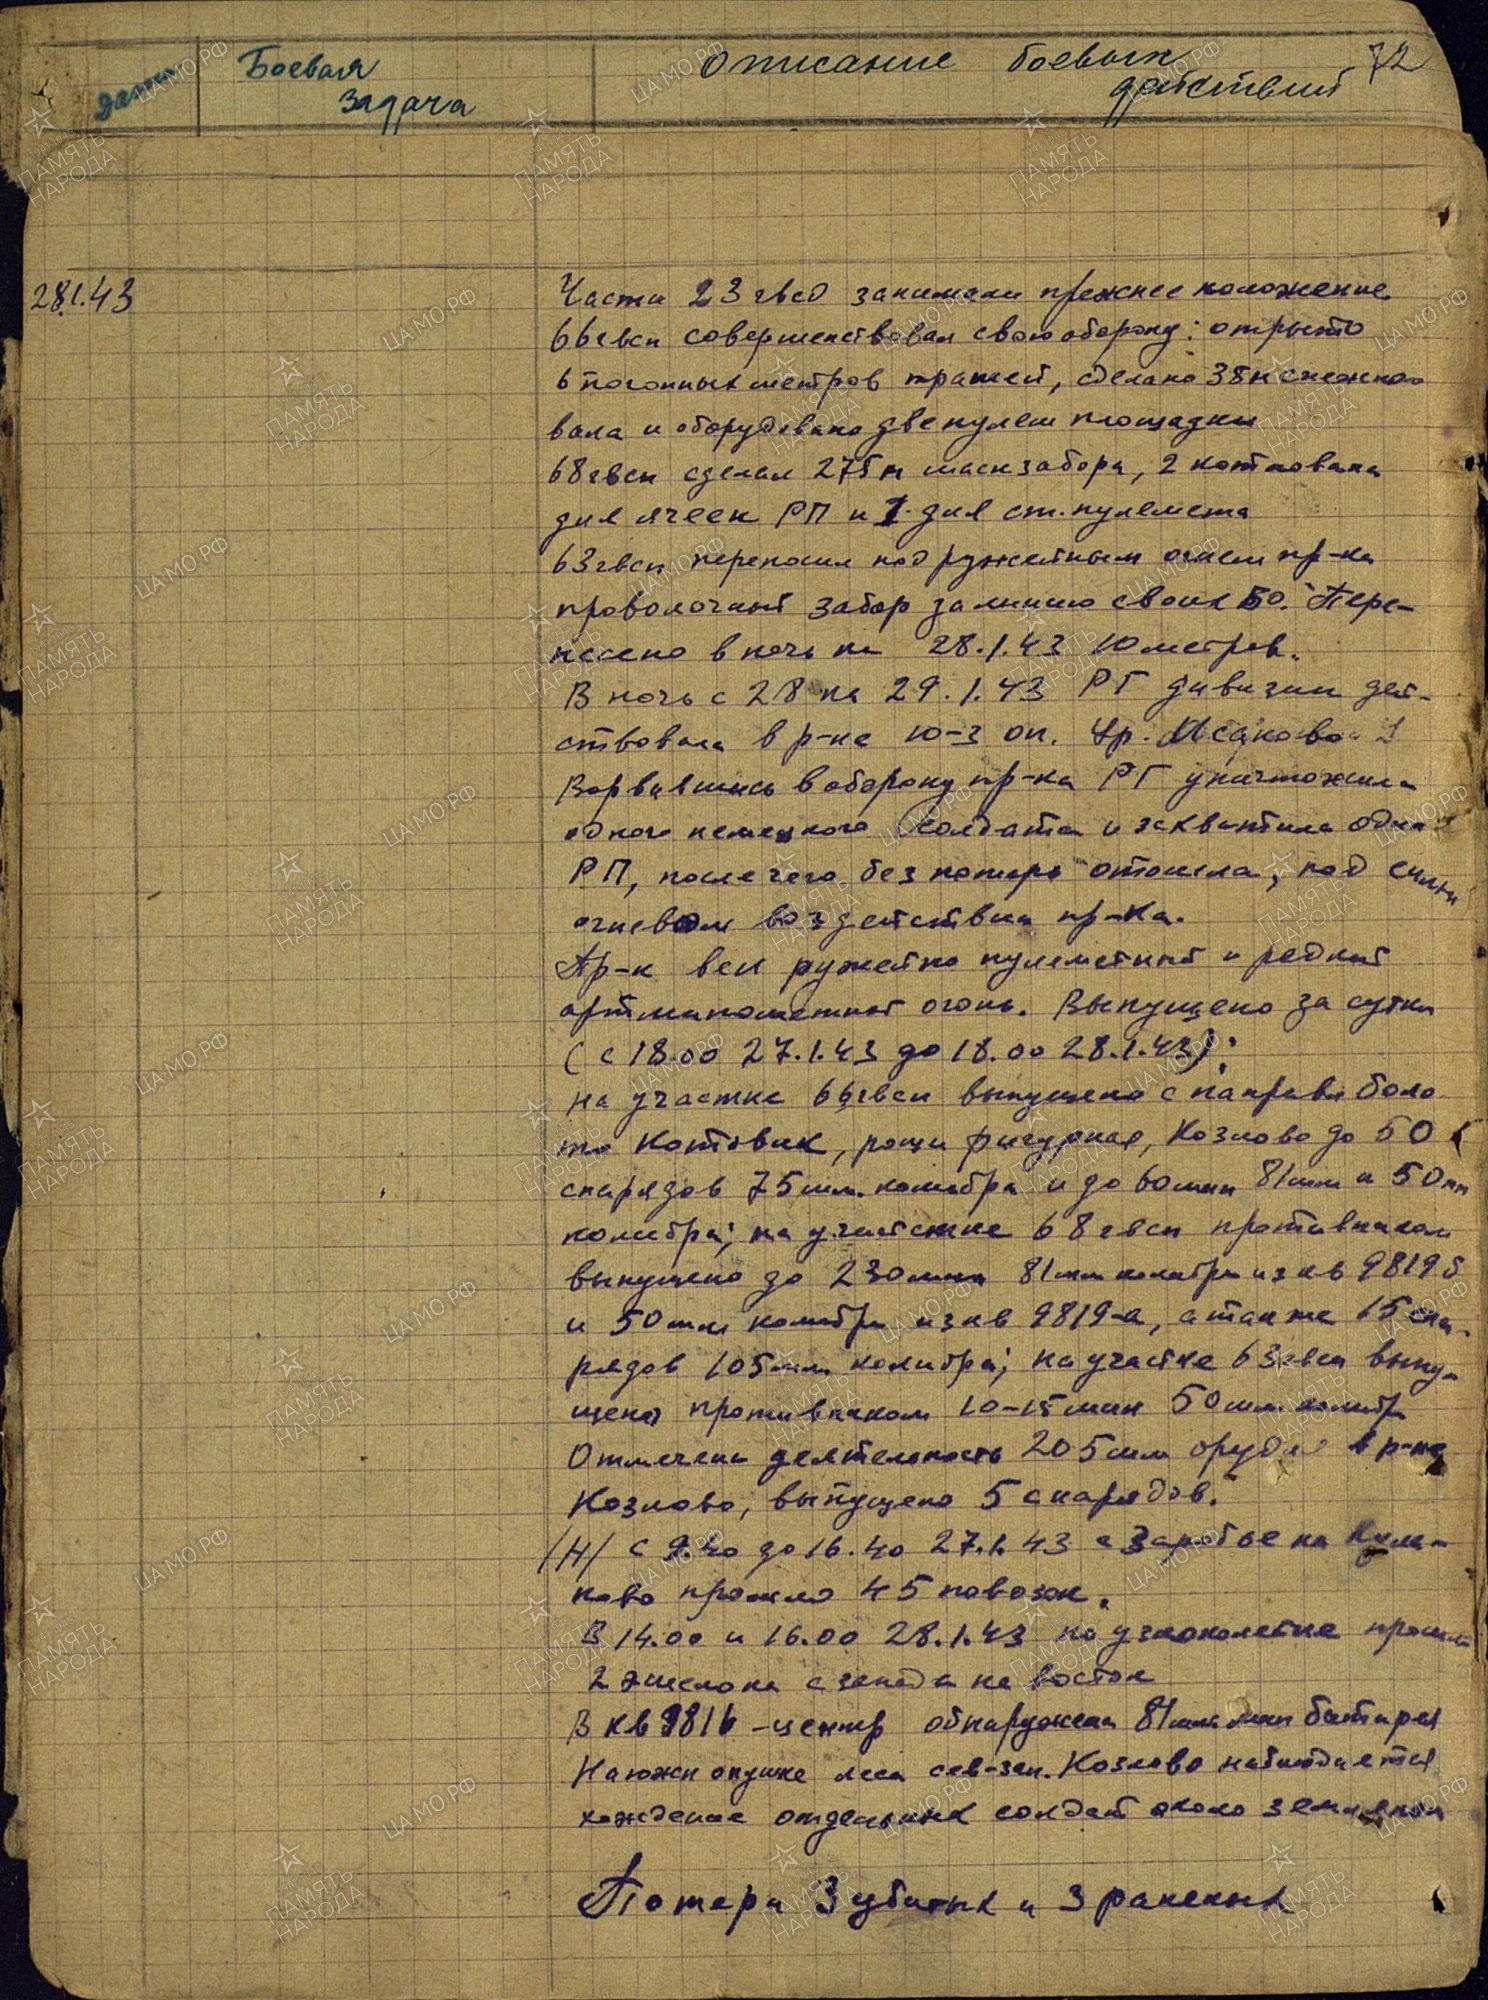 Дата Боевая Описание боевых 72
задача действий
28.1.43 Части 23 гвсд занимали прежнее положение
66 гвсп совершенствовал свою оборону: открыто
6 погонных метров траншей, сделано 38 м снежного
вала и оборудовано две пулем площадки
68 гвсп сделал 275 м маскзабора, 2 котлована
для ячеек РП и 1 для ст. пулемета
63 гвсп переносил под ружейным огнем пр-ка
проволочный забор за линию своих БО. Пере-
несено в ночь на 28.1.43 10 метров.
В ночь с 28 на 29.1.43 РГ дивизии дей-
ствовала в р-не ю-з оп. Ур. Исаково 1
Ворвавшись в оборону пр-ка РГ уничтожила
одного немецкого солдата и захватила один
РП, после чего без потерь отошла, под сильн
огневом воздействии пр-ка.
Пр-к вел ружейно пулеметный и редкий
артминометный огонь. Выпущено за сутки
(с 18.00 27.1.43 до 18.00 28.1.43):
на участке 66 гвсп выпущено с направл боло-
то Котовик, рощи фигурная, Козлово до 50
снарядов 75 мм. калибра и до 60 мин 81 мм и 50 мм
калибра; на участке 68 гвсп противником
выпущено до 230 мин 81 мм калибра из кв 9819 б
и 50 мм калибра из кв 9819-а, а также 15 сна-
рядов 105 мм калибра; на участке 63 гвсп выпу-
щено противником 10-15 мин 50 мм калибр
Отмечена деятельность 205 мм орудия в р-не
Козлово, выпущено 5 снарядов.
/Н/ с 9.40 до 16.40 27.1.43 с Заробье на Кула-
ково прошло 45 повозок.
В 14.00 и 16.00 28.1.43 по узкоколейке прошли
2 эшелона с запада на восток
В кв 9816 - центр обнаружена 81 мм мин батарея
На южн опушке леса сев-зап. Козлово наблюдается
хождение отдельных солдат около землянок
Потери 3 убитых и 3 раненых